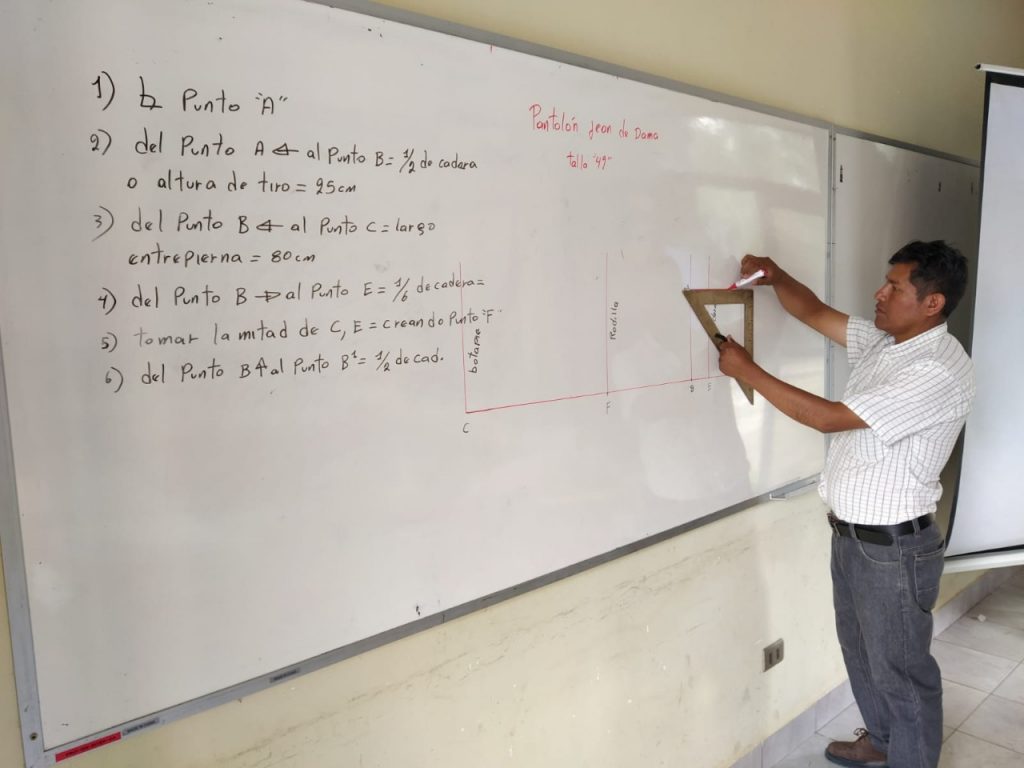 1) Punto "A"
2) del Punto A ← al Punto B = 1/2 de cadera
o altura de tiro = 25cm
3) del Punto B ← al Punto C = largo
entrepierna = 80cm
4) del Punto B → al Punto E = 1/6 de cadera =
5) tomar la mitad de C, E = creando Punto "F"
6) del Punto B ↑ al Punto B¹ = 1/2 de cad.
Pantalón jean de Dama
talla "42"
botapie
Rodilla
C
F
B
E